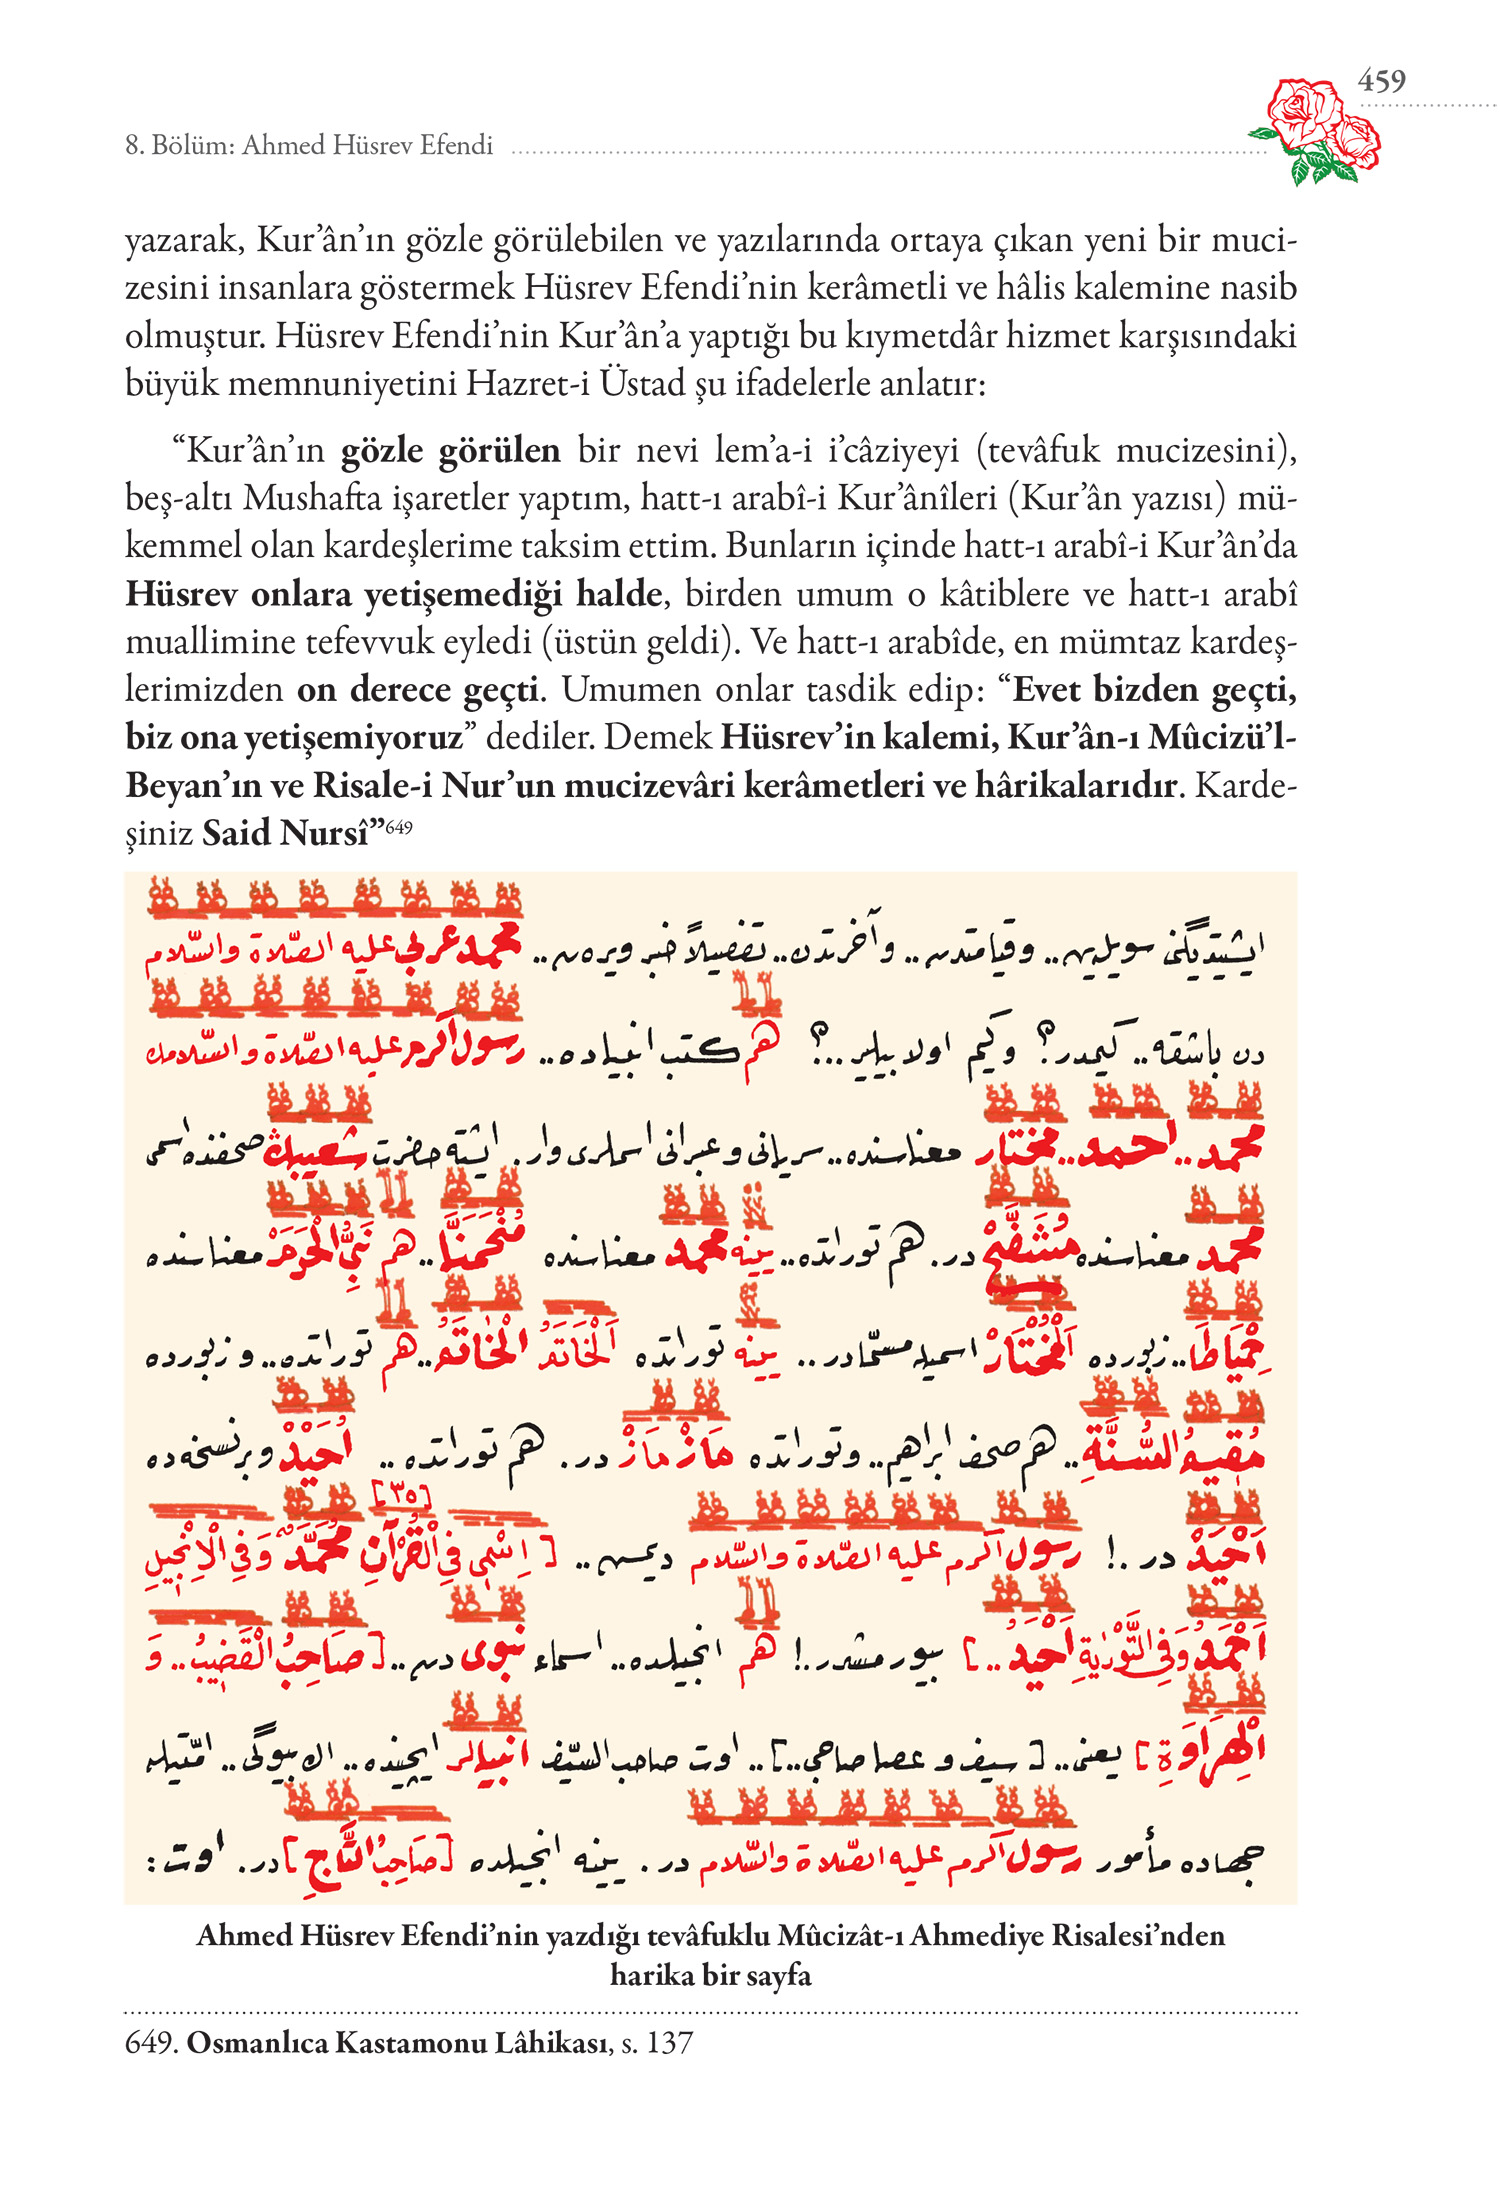 459
8. Bölüm: Ahmed Hüsrev Efendi
yazarak, Kur’ân’ın gözle görülebilen ve yazılarında ortaya çıkan yeni bir muci-
zesini insanlara göstermek Hüsrev Efendi’nin kerâmetli ve hâlis kalemine nasib
olmuştur. Hüsrev Efendi’nin Kur’ân’a yaptığı bu kıymetdâr hizmet karşısındaki
büyük memnuniyetini Hazret-i Üstad şu ifadelerle anlatır:
“Kur’ân’ın gözle görülen bir nevi lem’a-i i’câziyeyi (tevâfuk mucizesini),
beş-altı Mushafta işaretler yaptım, hatt-ı arabî-i Kur’ânîleri (Kur’ân yazısı) mü-
kemmel olan kardeşlerime taksim ettim. Bunların içinde hatt-ı arabî-i Kur’ân’da
Hüsrev onlara yetişemediği halde, birden umum o kâtiblere ve hatt-ı arabî
muallimine tefevvuk eyledi (üstün geldi). Ve hatt-ı arabîde, en mümtaz kardeş-
lerimizden on derece geçti. Umumen onlar tasdik edip: “Evet bizden geçti,
biz ona yetişemiyoruz” dediler. Demek Hüsrev’in kalemi, Kur’ân-ı Mûcizü’l-
Beyan’ın ve Risale-i Nur’un mucizevâri kerâmetleri ve hârikalarıdır. Karde-
şiniz Said Nursî”649
ایشیتدیگنی سویلەین.. وقیامتدن.. وآخرتدن.. تفصیلاً خبر ویرەن.. محمد عربی علیه الصّلاة والسّلام
دن باشقه.. کیمدر؟ وکیم اولا بیلیر..؟ هم کتب انبیاده.. رسول اکرم علیه الصّلاة والسّلامك
محمد.. احمد.. مختار معناسنده.. سریانی وعبرانی اسملری وار. ایشته حضرت شعیبك صحفنده اسمی
محمد معناسنده مُشَفَّحْ در. هم توراتده.. ینه محمد معناسنده مُنْحَمَنَّا.. هم نَبِیُّ الْحَرَمْ معناسنده
حِمْیَاطَا.. زبورده اَلْمُخْتَارْ اسمیله مسمّادر.. ینه توراتده اَلْخَاتَمُ الْخَاتَمْ.. هم توراتده.. وزبورده
مُقِیمُ السُّنَّةِ.. هم صحف ابراهیم.. وتوراتده مَازْ مَازْ در. هم توراتده.. اُحَیْدْ وبر نسخه‌ده
اَحْیَدْ در.! رسول اکرم علیه الصّلاة والسّلام دیمش.. [ اِسْمِی فِی الْقُرْآنِ مُحَمَّدٌ وَفِی الْاِنْجِیلِ
[٣٥]
اَحْمَدُ وَفِی التَّوْرٰیةِ اَحْیَدُ.. ] بیورمشدر.! هم انجیلده.. اسماء نبوی دن.. [ صَاحِبُ الْقَضِیبُ.. وَ
الْهِرَاوَةِ ] یعنی.. [ سیف و عصا صاحبی..].. اوت صاحب السّیف انبیالر ایچنده.. اڭ بیوگی.. امّتیله
جهاده مأمور رسول اکرم علیه الصّلاة والسّلام در. ینه انجیلده [صَاحِبُ التَّاجِ] در. اوت:
Ahmed Hüsrev Efendi’nin yazdığı tevâfuklu Mûcizât-ı Ahmediye Risalesi’nden
harika bir sayfa
649. Osmanlıca Kastamonu Lâhikası, s. 137